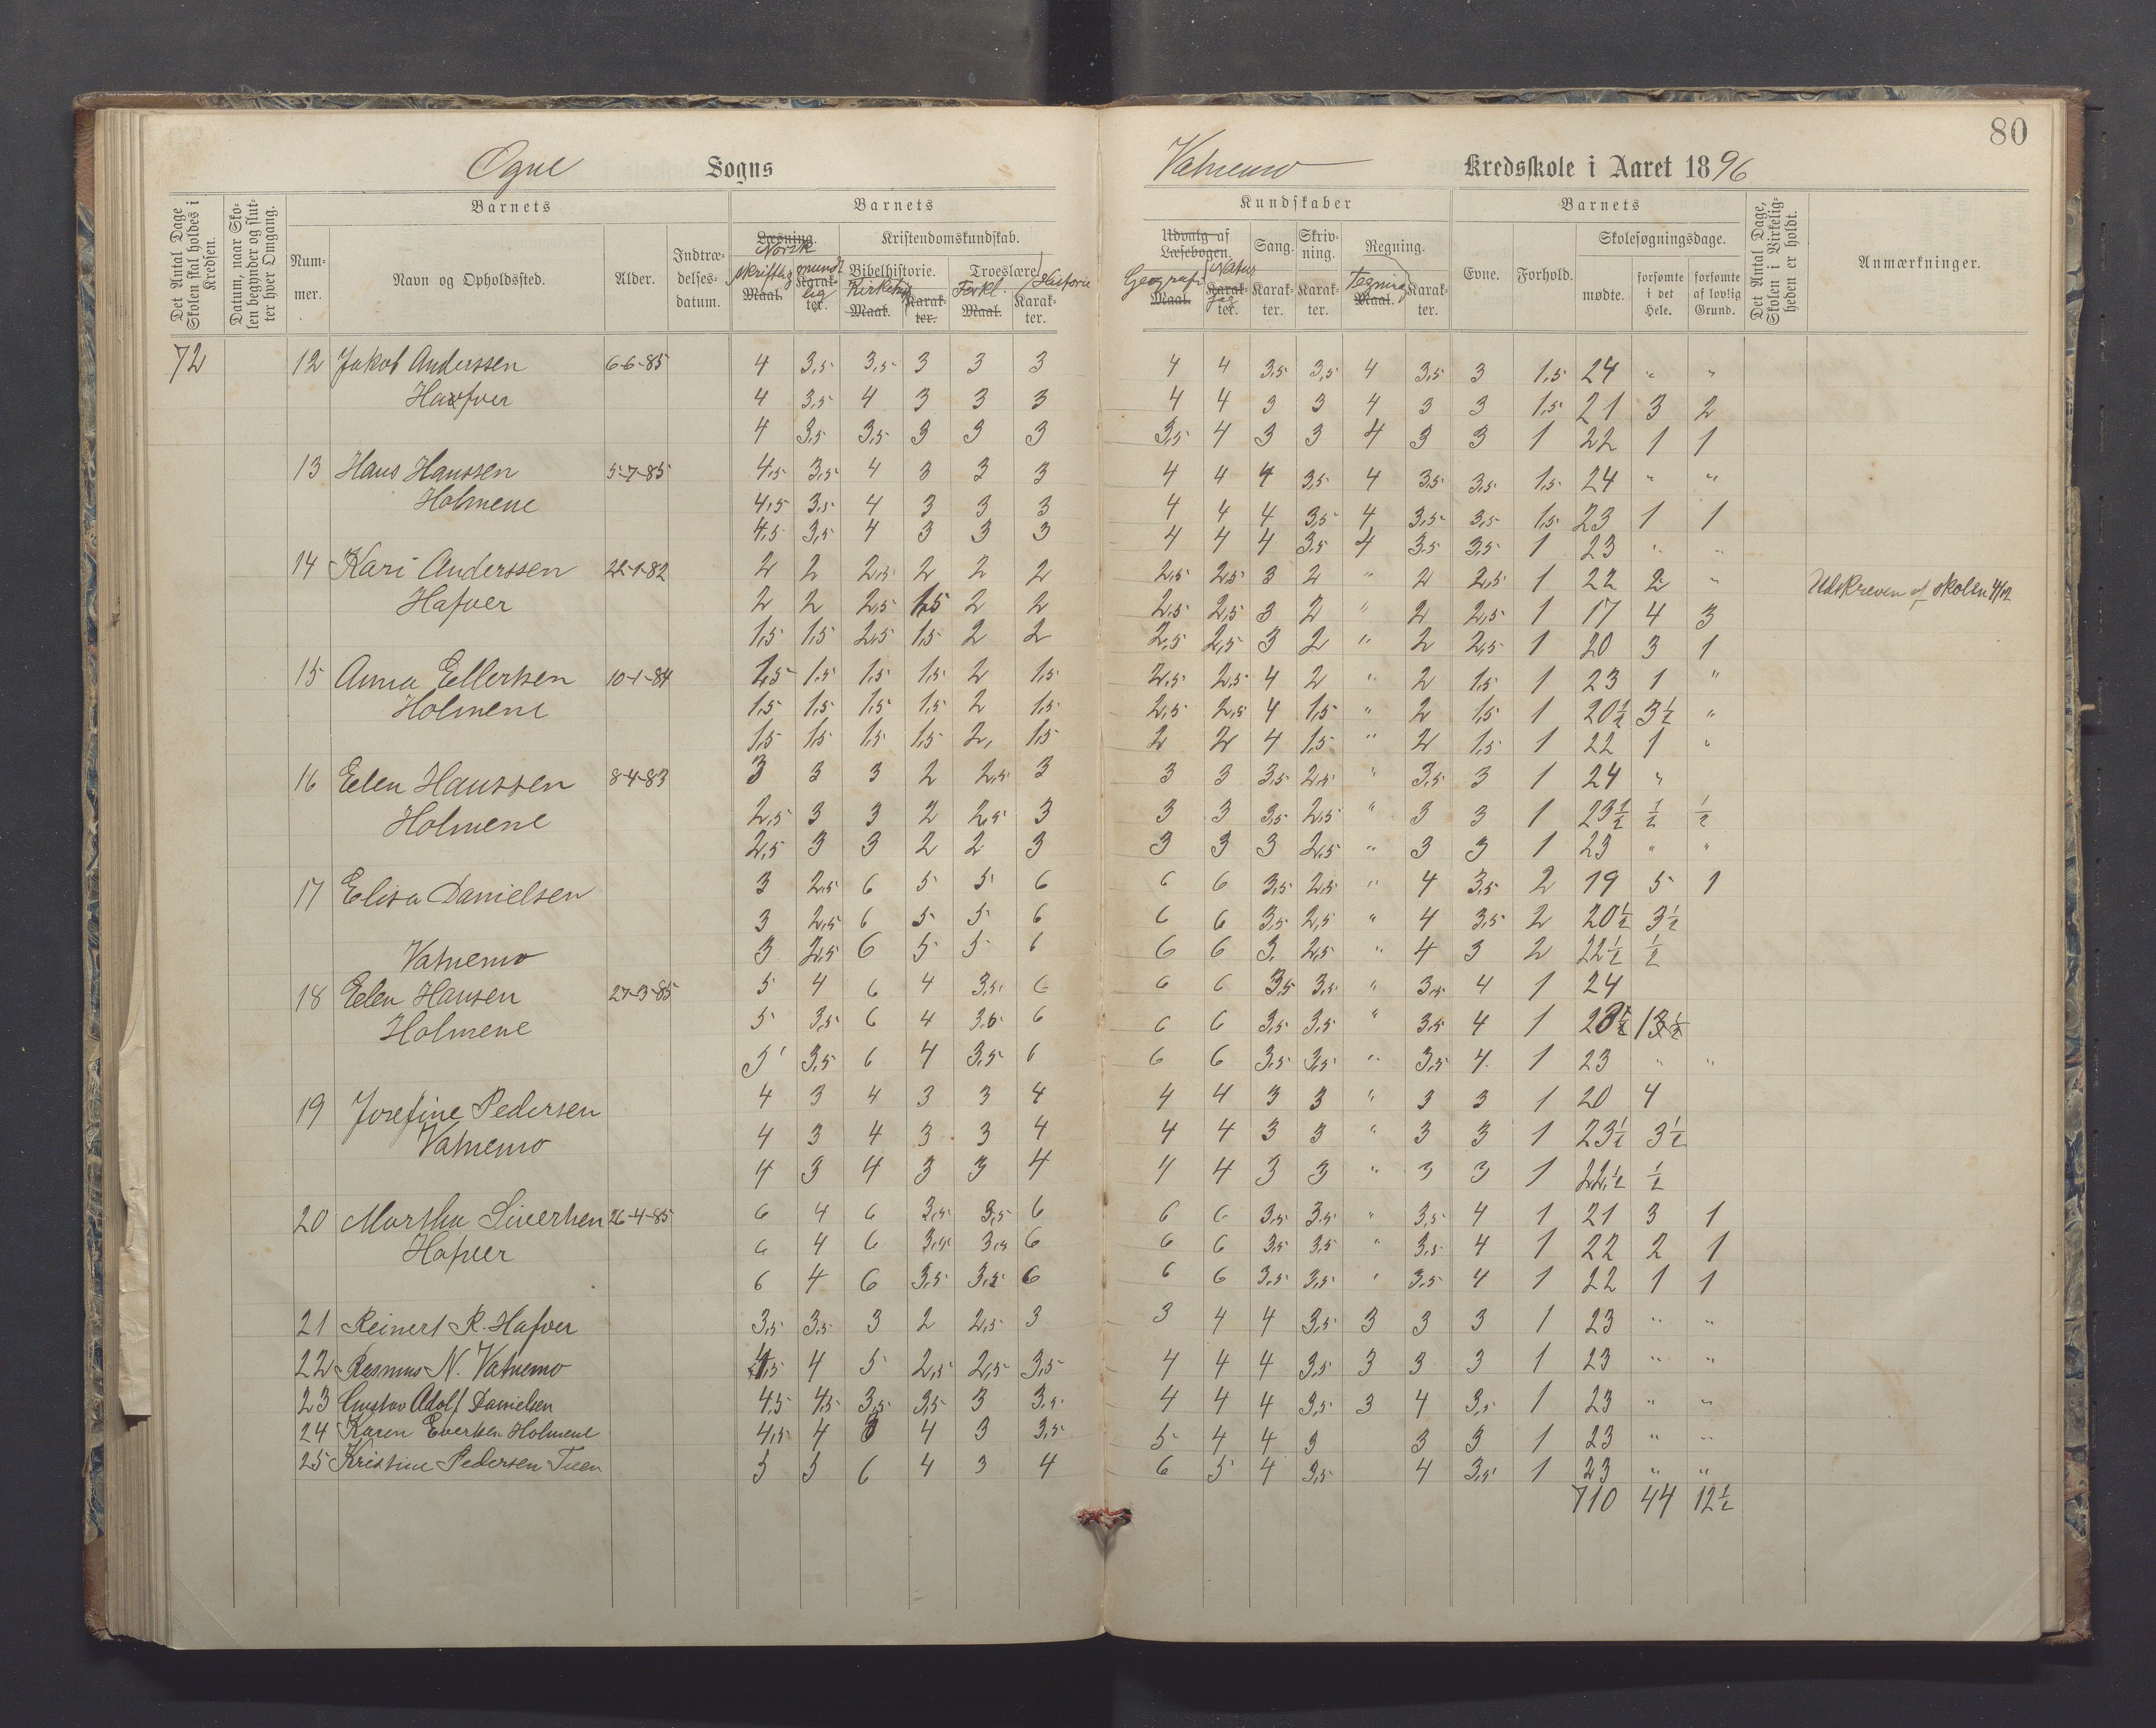 80
Ogne Sogns
Vatnemo Kredsskole i Aaret 1896
Det Antal Dage Skolen skal holdes i Kredsen.
Datum, naar Skolen begynder og slutter hver Omgang.
Barnets
Barnets
Kundskaber
Barnets
Det Antal Dage, Skolen i Virkeligheden er holdt.
Anmærkninger.
Nummer.
Navn og Opholdssted.
Alder.
Indtrædelsesdatum.
Læsning. Norsk
skriftlig mundtlig
Maal. Karakter.
Kristendomskundskab.
Bibelhistorie. Troeslære. Historie
Kirkeh. Forkl.
Maal. Karakter. Maal. Karakter.
Udvalg af Læsebogen.
Geografi Naturfag
Maal. Karakter.
Sang. Karakter.
Skrivning. Karakter.
Regning. Tegning
Maal. Karakter.
Evne.
Forhold.
Skolesøgningsdage.
mødte.
forsømte i det Hele.
forsømte af lovlig Grund.
72 12 Jakob Anderssen 6-6-85 4 3,5 3,5 3 3 3 4 4 3,5 3,5 4 3,5 3 1,5 24 " "
Hafver 4 3,5 4 3 3 3 4 4 3 3 4 3 3 1,5 21 3 2
4 3,5 3,5 3 3 3 3,5 4 3 3 4 3 3 1 22 1 1
13 Hans Hanssen 5-7-85 4,5 3,5 4 3 3 3 4 4 4 3,5 4 3,5 3,5 1,5 24 " "
Holmene 4,5 3,5 4 3 3 3 4 4 4 3,5 4 3,5 3,5 1,5 23 1 1
4,5 3,5 4 3 3 3 4 4 4 3,5 4 3,5 3,5 1 23 " "
14 Kari Anderssen 22-1-82 2 2 2,5 2 2 2 2,5 2,5 3 2 " 2 2,5 1 22 2 " Udskreven af skolen 4/12
Hafver 2 2 2,5 1,5 2 2 2,5 2,5 3 2 " 2 2,5 1 17 4 3
1,5 1,5 2,5 1,5 2 2 2,5 2,5 3 2 " 2 2,5 1 20 3 1
15 Anna Ellertsen 10-1-84 1,5 1,5 1,5 1,5 2 1,5 2,5 2,5 4 2 " 2 1,5 1 23 1 "
Holmene 1,5 1,5 1,5 1,5 2 1,5 2,5 2,5 4 1,5 " 2 1,5 1 20½ 3½ "
1,5 1,5 1,5 1,5 2, 1,5 2 2 4 1,5 " 2 1,5 1 22 1 "
16 Eelen Hanssen 8-4-83 3 3 3 2 2,5 3 3 3 3,5 2,5 " 3,5 3 1 24 "
Holmene 2,5 3 3 2 2,5 3 3 3 3,5 2,5 " 3 3 1 23½ ½ ½
2,5 3 3 2 2 3 3 3 3 2,5 " 3 3 1 23 " "
17 Elisa Danielsen 3 2,5 6 5 5 6 6 6 3,5 2,5 " 4 3,5 2 19 5 1
3 2,5 6 5 5 6 6 6 3,5 2,5 " 4 3,5 2 20½ 3½
Vatnemo 3 2,5 6 5 5 6 6 6 3, 2,5 " 4 3 2 22½ ½
18 Eelen Hansen 27-3-85 5 4 6 4 3,5 6 6 6 3,5 3,5 " 3,5 4 1 24
Holmene 5 3,5 6 4 3,5 6 6 6 3,5 3,5 " 3,5 4 1
5 3,5 6 4 3,5 6 6 6 3,5 3,5 " 3,5 4 1 23 " "
19 Josefine Pedersen 4 3 4 3 3 4 4 4 3 3 " 3 3 1 20 4
Vatnemo 4 3 4 3 3 4 4 4 3 3 " 3 3 1 23½ 3½
4 3 4 3 3 4 4 4 3 3 " 3 3 1 22½ ½
20 Martha Sivertsen 26-4-85 6 4 6 3,5 3,5 6 6 6 3,5 3,5 " 3,5 4 1 21 3 1
Hafver 6 4 6 3,5 3,5 6 6 6 3,5 3,5 " 3,5 4 1 22 2 1
6 4 6 3,5 3,5 6 6 6 3,5 3,5 " 3,5 4 1 22 1 1
21 Reinert R. Hafver 3,5 3,5 3 2 2,5 3 3 4 4 3,5 3 3 3 1 23 " "
22 Rasmus N. Vatnemo 4,5 4 5 2,5 2,5 3,5 4 4 4 3,5 3 3 3 1 23 " "
23 Gustav Adolf Danielsen 4,5 4,5 3,5 3,5 3 3,5 4 4 4 3,5 3 4 3,5 1 23 " "
24 Karen Evertsen Holmene 4,5 4 4 3 3,5 5 4 4 3 3 3 1 23 " "
25 Kristine Pedersen Tuen 5 5 6 4 3 4 6 5 4 3,5 4 3,5 1 23 " "
710 44 12½